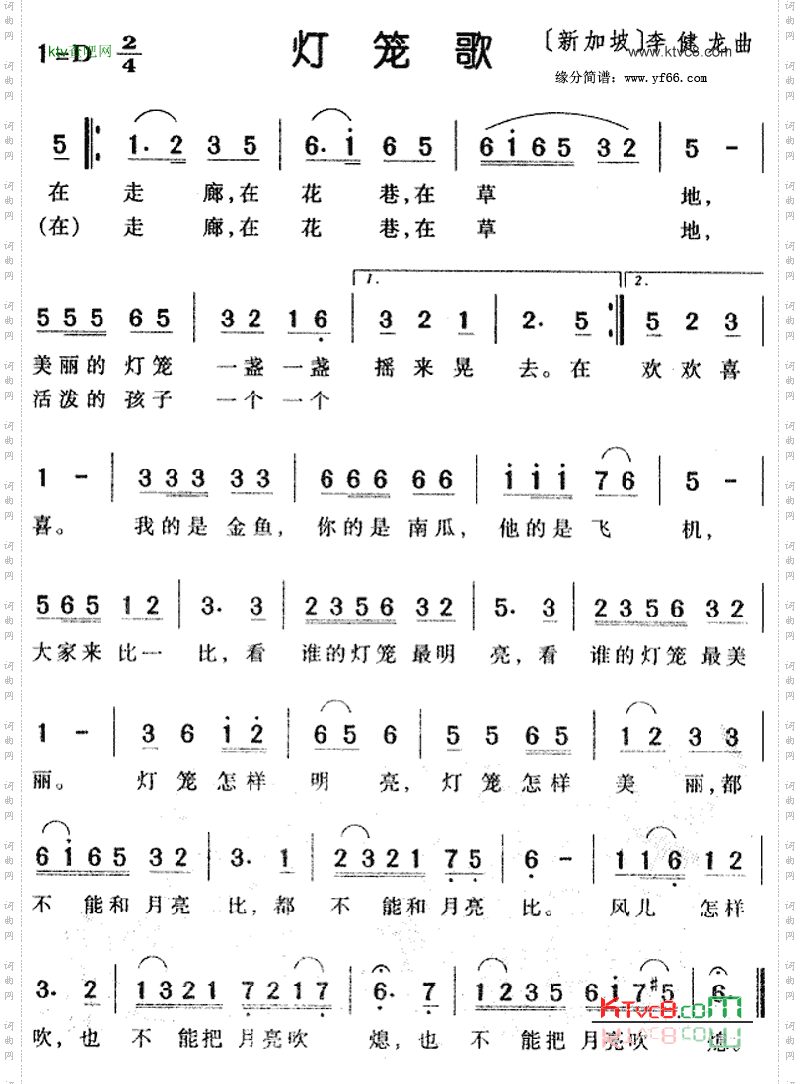 1=D 2/4
ktv香吧网
灯笼歌
〔新加坡〕李健龙曲
www.ktvc8.com
缘分简谱：www.yf66.com
5 1. 2 3 5 6. i 6 5 6 i 6 5 3 2 5 -
在 走 廊,在 花 巷,在 草 地,
(在) 走 廊,在 花 巷,在 草 地,
1. 2.
5 5 5 6 5 3 2 1 6 3 2 1 2. 5 5 2 3
美丽的 灯笼 一盏 一盏 摇来晃 去。在 欢欢喜
活泼的 孩子 一个 一个
1 - 3 3 3 3 3 6 6 6 6 6 i i i 7 6 5 -
喜。 我的是 金鱼, 你的是 南瓜, 他的是 飞 机,
5 6 5 1 2 3. 3 2 3 5 6 3 2 5. 3 2 3 5 6 3 2
大家来 比一 比,看 谁的灯笼 最明 亮,看 谁的灯笼 最美
1 - 3 6 i 2 6 5 6 5 5 6 5 1 2 3 3
丽。 灯笼怎样 明 亮,灯笼怎样 美 丽,都
6 i 6 5 3 2 3. 1 2 3 2 1 7 5 6 - 1 1 6 1 2
不 能和 月亮 比,都 不 能和 月亮 比。 风儿 怎样
3. 2 1 3 2 1 7 2 1 7 6. 7 1 2 3 5 6 i 7 #5 6
吹,也 不 能把 月亮吹 熄,也 不 能把 月亮吹 熄。
KTvc8.com
词曲网